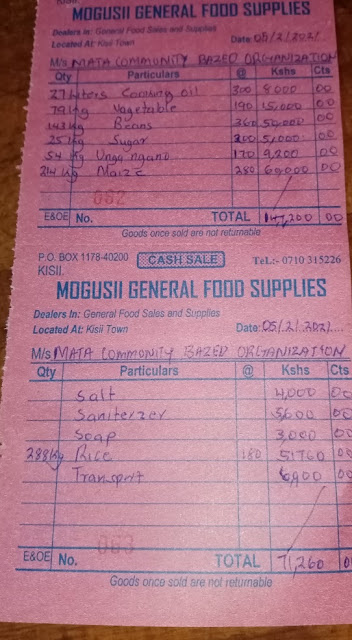 MOGUSII GENERAL FOOD SUPPLIES
Dealers in: General Food Sales and Supplies
Located At: Kisii Town Date: 05/2/2021
M/s MATA COMMUNITY BAZED ORGANIZATION
Qty Particulars @ Kshs Cts
27 liters Cooking oil 300 8,000 00
79 kg Vagetable 190 15,000 00
143 kg Beans 360 50,000 00
25 kg Sugar 200 5,000 00
54 kg Unga ngano 170 9,200 00
214 kg Maize 280 60,000 00
062
E&OE No. TOTAL 147,200 00
Goods once sold are not returnable
P.O. BOX 1178-40200 CASH SALE TeL:- 0710 315226
KISII.
MOGUSII GENERAL FOOD SUPPLIES
Dealers in: General Food Sales and Supplies
Located At: Kisii Town Date: 05/2/2021
M/s MATA COMMUNITY BAZED ORGANIZATION
Qty Particulars @ Kshs Cts
Salt 4,000 00
Saniterzer 5600 00
Soap 3,000 00
288kg Rice 180 51760 00
Transport 6,900 00
063
E&OE No. TOTAL 71,260
Goods once sold are not returnable